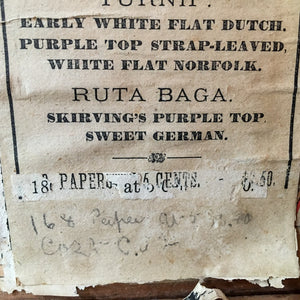 TURNIP.
EARLY WHITE FLAT DUTCH.
PURPLE TOP STRAP-LEAVED,
WHITE FLAT NORFOLK.
RUTA BAGA.
SKIRVING'S PURPLE TOP
SWEET GERMAN.
PAPERS at CENTS.
168 Paper